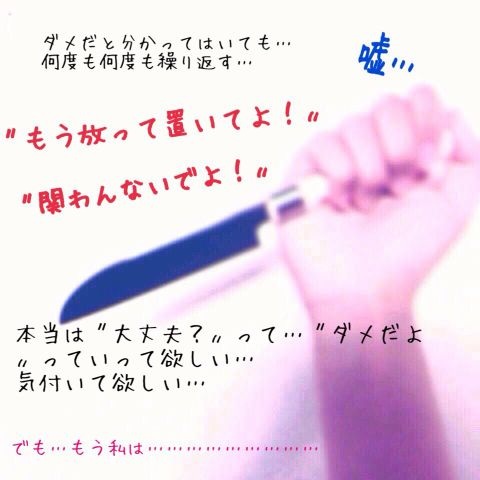 ダメだと分かってはいても…
何度も何度も繰り返す…
嘘…
〃もう放って置いてよ！〃
〃関わんないでよ！〃
本当は〃大丈夫？〃って…〃ダメだよ
〃っていって欲しい…
気付いて欲しい…
でも…もう私は……………………